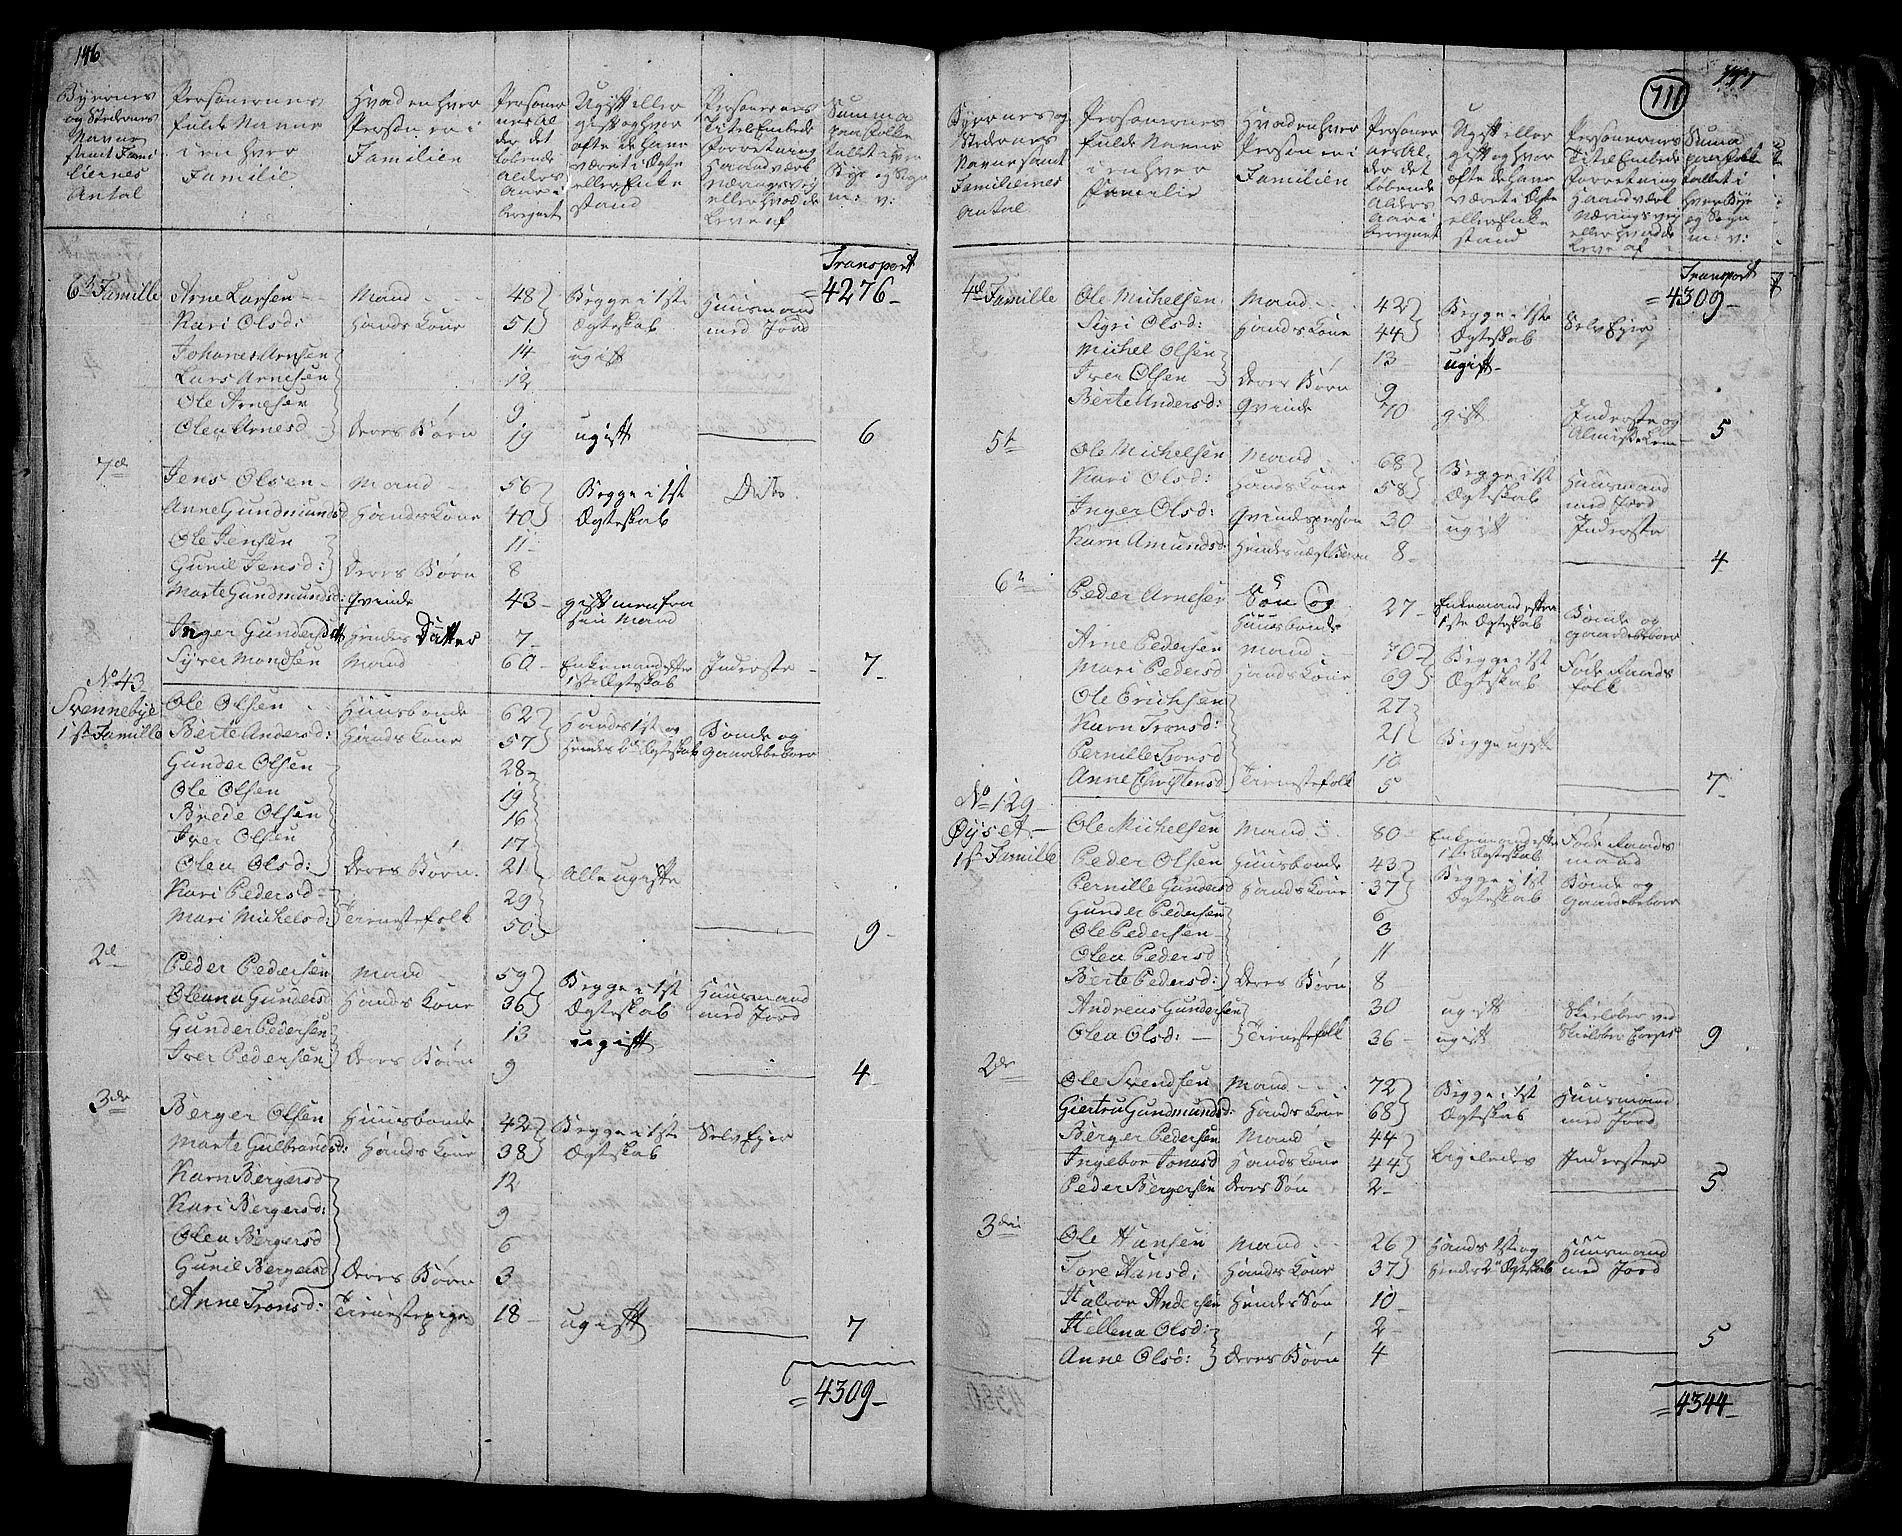 146
Byernes og Stedernes Navne samt Familiernes Antal
Personernes fulde Navne i en hver Familie
Hvad en hver Person er i Familien
Personernes Alder det løbende Alders Aar i beregnet
Ugift eller gift og hvor ofte de have været i Ægte eller Enke stand
Personernes Titel Embede Forretning Haandværk Næringsvej eller hvad de leve af
Summa paa Folke tallet i hver Bye og Sogn m: v:
Transport
6te Famille Arne Larsen Mand 48 Begge i 1ste Huusmand = 4276
Kari Olsd: Hands Kone 51 Ægteskab med Jord
Johanes Arnsen 14 ugift
Lars Arnesen 12
Ole Arnesen 9
Olea Arnesd Deres Børn 19 ugift 6
7de Jens Olsen Mand 56 Begge i 1st Dito
Anne Gundmundsd Hands Kone 40 Ægteskab
Ole Jensen 11
Gunil Jensd: Deres Børn 8
Marte Gundmundsd: Qvinde 43 gift men fra
sin Mand
Inger Gundersdatt Hendes Datter 7
Syver Mondsen Mand 60 Enkemand efter Inderste 7
1ste Ægteskab
No 43
Svennebye Ole Olsen Huusbonde 62 Hands 1st og Bonde og
1st Famille Berte Andersd: Hands Kone 57 Hendes 2t Ægteskab Gaardbeboer
Gunder Olsen 28
Ole Olsen 19
Brede Olsen 16
Iver Olsen 17
Olea Olsd: Deres Børn 21 Alle ugifte
Kari Pedersd 29
Mari Michelsd: Tienestefolk 50 9
2de Peder Pedersen Mand 59 Begge i 1st Huusmand
Oleana Gundersd Hands Kone 36 Ægteskab med Jord
Gunder Pedersen 13 ugift
Iver Pedersen Deres Børn 9 4
3de Berger Olsen Huusbonde 42 Begge i 1ste Selv Ejer
Marte Gulbrandsd: Hands Kone 38 Ægteskab
Karn Bergersd 12
Kari Bergersd: 9
Olea Bergersd 6
Gunil Bergersd Deres Børn 3
Anne Tronsd: Tienestepige 18 ugift 7
= 4309
711
Byernes og Stedernes Navne samt Familiernes Antal
Personernes fulde Navne i en hver Familie
Hvad en hver Person er i Familien
Personernes Alder det løbende Alders Aar i beregnet
Ugift eller gift og hvor ofte de have været i Ægte eller Enke stand
Personernes Titel Embede Forretning Haandværk Næringsvej eller hvad de leve af
Summa paa Folke tallet i hver Bye og Sogn m: v:
Transport
4de Famille Ole Michelsen Mand 42 Begge i 1ste = 4309
Sigri Olsd: Hands Kone 44 Ægteskab Selv Ejer
Michel Olsen 13 ugift
Iver Olsen Deres Børn 9
Berte Andersd: Qvinde 70 gift Inderste og
Almisse Lem 5
5te Ole Michelsen Mand 68 Begge i 1st Huusmand
Kari Olsd: Hands Kone 58 Ægteskab med Jord
Inger Olsd: Qvindeperson 30 ugift Inderste
Karn Amundsd Hendes uægte Barn 8 4
6te Peder Arnesen Søn og 27 Enkemand efter Bonde og
Huusbonde 1ste Ægteskab gaardbeboer
Arne Pedersen Mand 70 Begge i 1st Føderaads
Mari Pedersd Hands Kone 69 Ægteskab folk
Ole Erichsen 27
Karn Tronsd: 21 Begge ugifte
Pernille Tronsd 10
Anne Christensd Tienestefolk 5 7
No 129
Øyset Ole Michelsen Mand 80 Enkemand efter Føderaads
1ste Ægteskab mand
1st Famille Peder Olsen Huusbonde 43 Begge i 1st Bonde og
Pernille Gundersd Hands Kone 37 Ægteskab Gaardbeboer
Gunder Pedersen 6
Ole Pedersen 3
Olea Pedersd 11
Berte Pedersd: Deres Børn 8
Andreas Gundersen 30 ugift Skieløber ved
Olea Olsd: Tienestefolk 36 ugift Skieløber Corpset 9
2de Ole Svendsen Mand 72 Begge i 1st Huusmand
Giertru Gundmundsd: Hands Kone 68 Ægteskab med Jord
Berger Pedersen Mand 44
Ingebor Jonasd Hands Kone 44 Ligeledes Inderster
Peder Bergersen Deres Søn 2 5
3die Ole Hansen Mand 26 Hands 1ste og Huusmand
Tore Hansd: Hands Kone 37 Hendes 2t Ægteskab med Jord
Halvor Andersen Hendes Søn 10
Hellena Olsd: 2
Anne Olsd: Deres Børn 4 5
= 4344